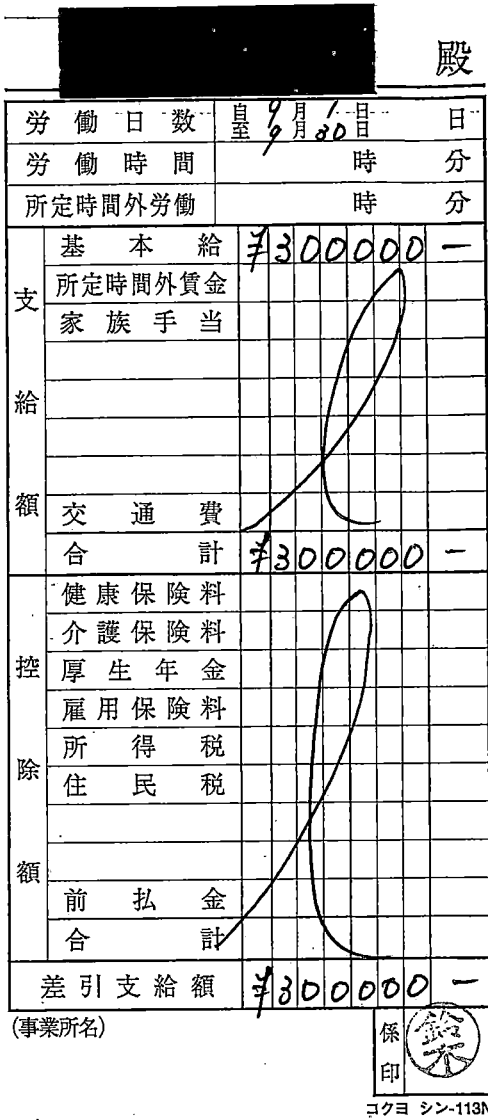 殿
労働日数 自9月1日 至9月30日 日
労働時間 時 分
所定時間外労働 時 分
支給額
基本給 ¥300000-
所定時間外賃金
家族手当
交通費
合計 ¥300000-
控除額
健康保険料
介護保険料
厚生年金
雇用保険料
所得税
住民税
前払金
合計
差引支給額 ¥300000-
(事業所名)
係印 鈴木
コクヨ シン-113N